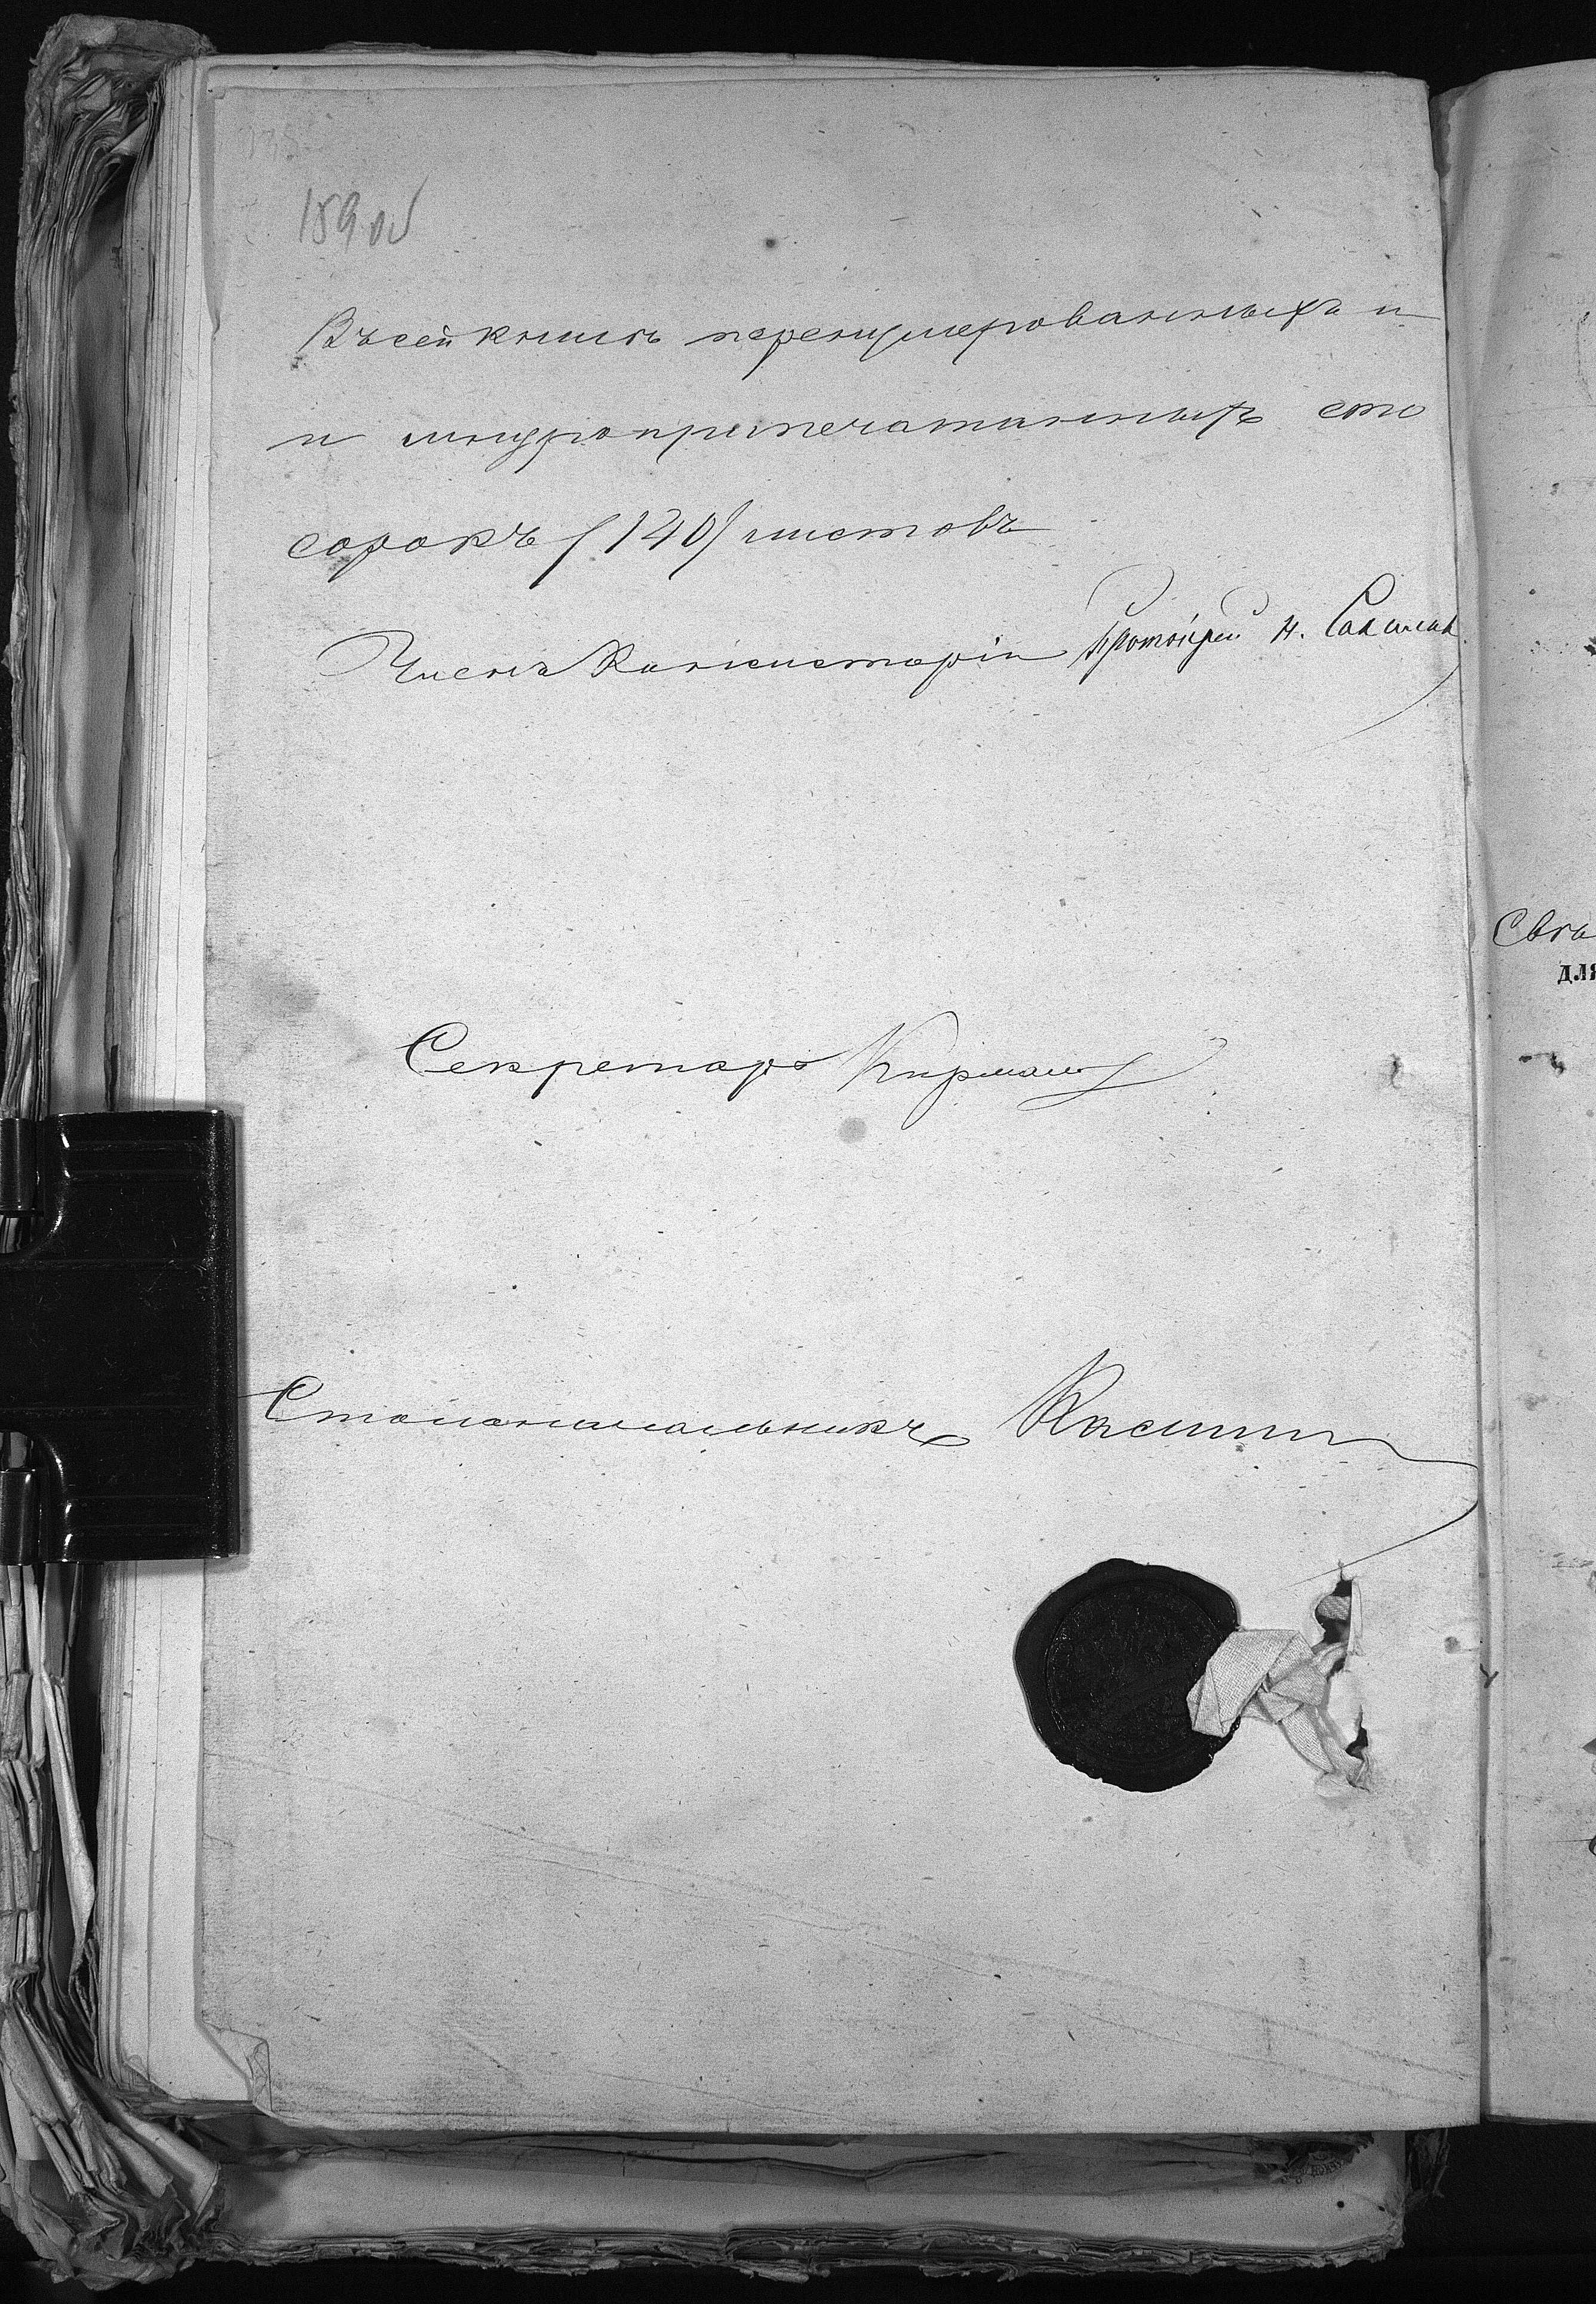 159 об
Въ сей книгѣ перенумерованныхъ и
и шнуроприпечатанныхъ сто
сорокъ (140) листовъ
Членъ Консисторіи Протоіерей Н.
Секретарь
Столоначальникъ
Свѣ
ДЛЯ